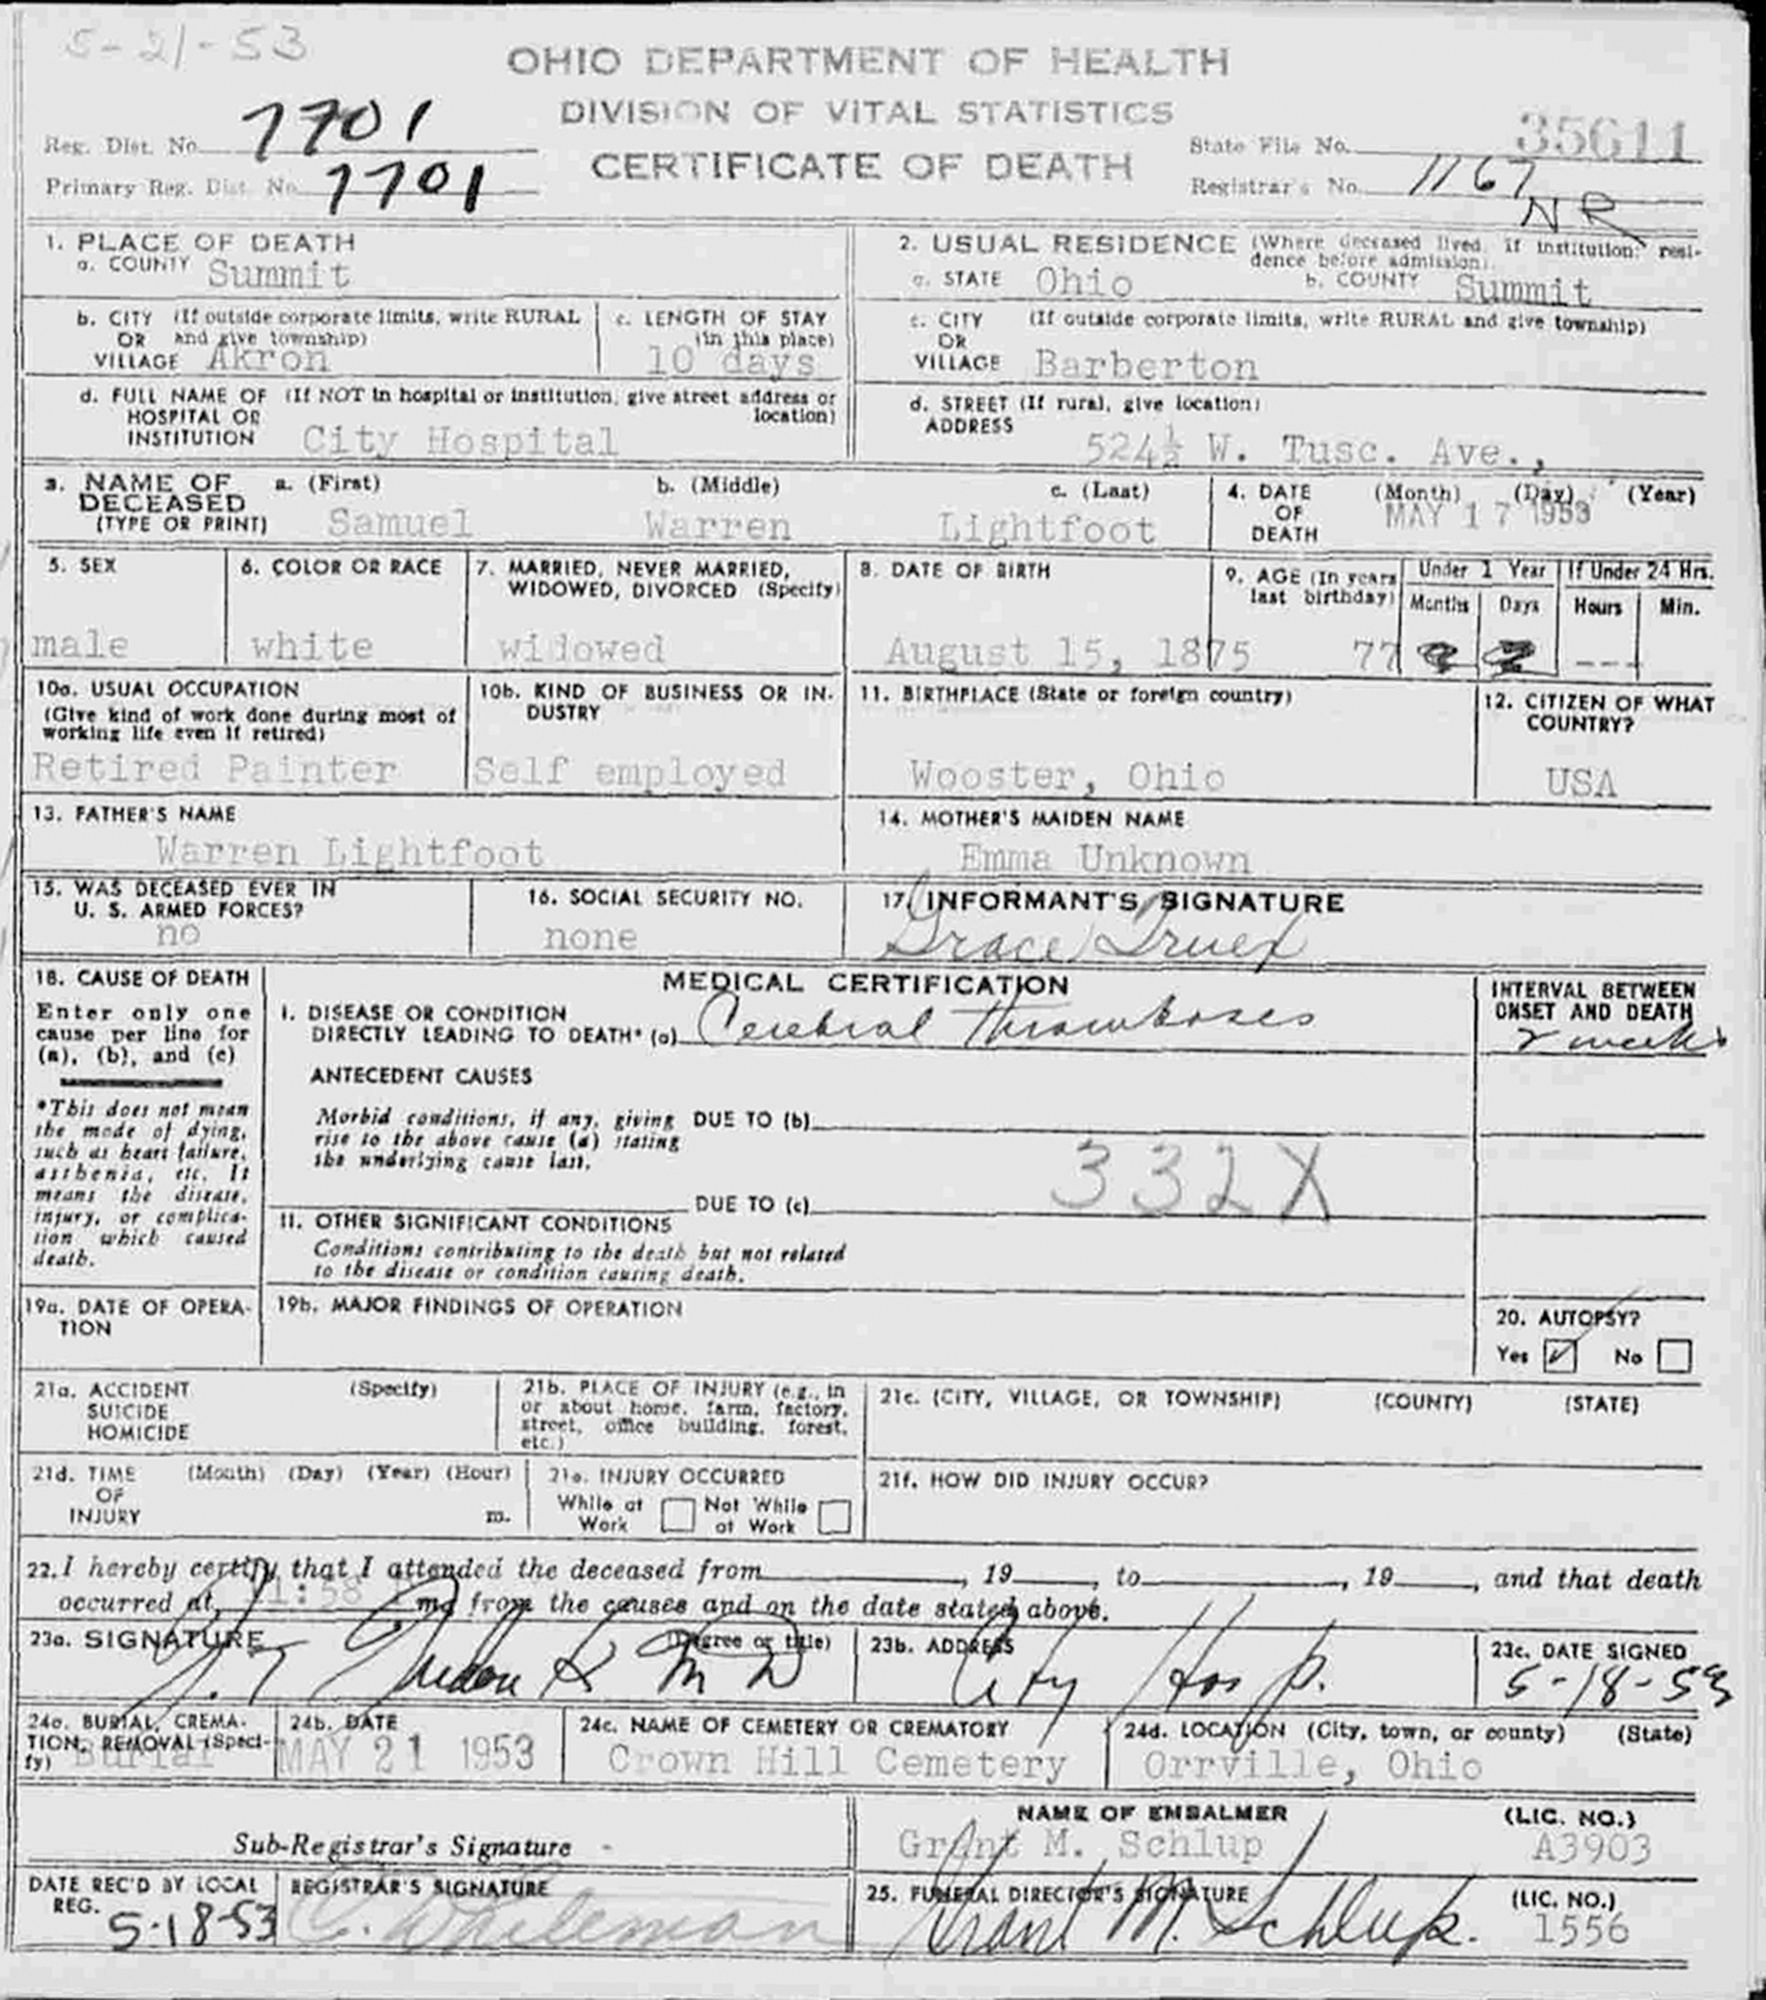 5-21-53
OHIO DEPARTMENT OF HEALTH
DIVISION OF VITAL STATISTICS
CERTIFICATE OF DEATH
Reg. Dist. No. 7701
Primary Reg. Dist. No. 7701
State File No. 35611
Registrar's No. 1167
NR
1. PLACE OF DEATH
a. COUNTY Summit
b. CITY (If outside corporate limits, write RURAL
OR and give township)
VILLAGE Akron
c. LENGTH OF STAY
(in this place)
10 days
d. FULL NAME OF (If NOT in hospital or institution, give street address or
HOSPITAL OR location)
INSTITUTION City Hospital
2. USUAL RESIDENCE (Where deceased lived. If institution: resi-
dence before admission).
a. STATE Ohio b. COUNTY Summit
c. CITY (If outside corporate limits, write RURAL and give township)
OR
VILLAGE Barberton
d. STREET (If rural, give location)
ADDRESS
524½ W. Tusc. Ave.,
3. NAME OF a. (First) b. (Middle) c. (Last)
DECEASED
(TYPE OR PRINT) Samuel Warren Lightfoot
4. DATE (Month) (Day) (Year)
OF MAY 17 1953
DEATH
5. SEX
male
6. COLOR OR RACE
white
7. MARRIED, NEVER MARRIED,
WIDOWED, DIVORCED (Specify)
widowed
8. DATE OF BIRTH
August 15, 1875
9. AGE (In years
last birthday)
77
Under 1 Year
Months Days
If Under 24 Hrs.
Hours Min.
---
10a. USUAL OCCUPATION
(Give kind of work done during most of
working life even if retired)
Retired Painter
10b. KIND OF BUSINESS OR IN-
DUSTRY
Self employed
11. BIRTHPLACE (State or foreign country)
Wooster, Ohio
12. CITIZEN OF WHAT
COUNTRY?
USA
13. FATHER'S NAME
Warren Lightfoot
14. MOTHER'S MAIDEN NAME
Emma Unknown
15. WAS DECEASED EVER IN
U. S. ARMED FORCES?
no
16. SOCIAL SECURITY NO.
none
17. INFORMANT'S SIGNATURE
Grace Truex
18. CAUSE OF DEATH
Enter only one
cause per line for
(a), (b), and (c)
*This does not mean
the mode of dying,
such as heart failure,
asthenia, etc. It
means the disease,
injury, or complica-
tion which caused
death.
MEDICAL CERTIFICATION
I. DISEASE OR CONDITION
DIRECTLY LEADING TO DEATH* (a) Cerebral Thromboses
ANTECEDENT CAUSES
Morbid conditions, if any, giving DUE TO (b)
rise to the above cause (a) stating
the underlying cause last.
332X
DUE TO (c)
II. OTHER SIGNIFICANT CONDITIONS
Conditions contributing to the death but not related
to the disease or condition causing death.
INTERVAL BETWEEN
ONSET AND DEATH
2 weeks
19a. DATE OF OPERA-
TION
19b. MAJOR FINDINGS OF OPERATION
20. AUTOPSY?
Yes ✓ No
21a. ACCIDENT (Specify)
SUICIDE
HOMICIDE
21b. PLACE OF INJURY (e.g., in
or about home, farm, factory,
street, office building, forest,
etc.)
21c. (CITY, VILLAGE, OR TOWNSHIP) (COUNTY) (STATE)
21d. TIME (Month) (Day) (Year) (Hour)
OF
INJURY m.
21e. INJURY OCCURRED
While at Not While
Work at Work
21f. HOW DID INJURY OCCUR?
22. I hereby certify that I attended the deceased from , 19 , to , 19 , and that death
occurred at m., from the causes and on the date stated above.
23a. SIGNATURE (Degree or title)
M D
23b. ADDRESS
City Hosp.
23c. DATE SIGNED
5-18-53
24a. BURIAL, CREMA-
TION, REMOVAL (Speci-
fy) Burial
24b. DATE
MAY 21 1953
24c. NAME OF CEMETERY OR CREMATORY
Crown Hill Cemetery
24d. LOCATION (City, town, or county) (State)
Orrville, Ohio
Sub-Registrar's Signature
NAME OF EMBALMER (LIC. NO.)
Grant M. Schlup A3903
DATE REC'D BY LOCAL
REG. 5-18-53
REGISTRAR'S SIGNATURE
C. Whiteman
25. FUNERAL DIRECTOR'S SIGNATURE (LIC. NO.)
Grant M. Schlup. 1556